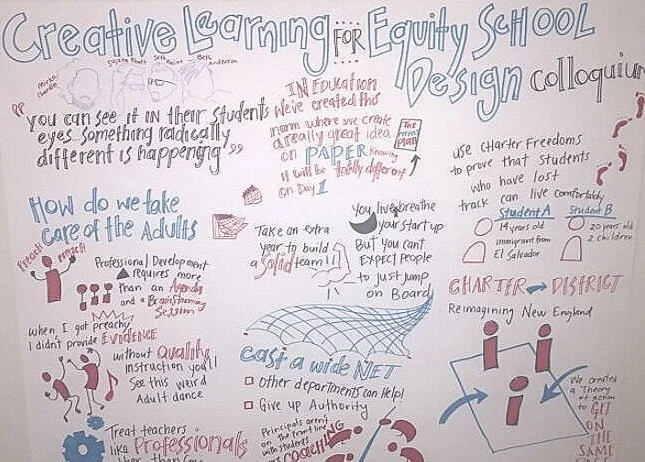 Creative Learning FOR Equity SCHOOL
Design Colloquium
Beth
Seth
"you can see it in their students
eyes. something radically
different is happening"
IN Education
We've created this
norm where we create
a really great idea
on PAPER knowing
it will be totally different
on Day 1
The
Great
Plan
use CHarter Freedoms
to prove that students
who have lost
track can live comfortably
Student A
14 years old
immigrant from
El Salvador
Student B
20 years old
2 children
CHARTER → DISTRICT
Reimagining New England
We created
a Theory
of action
to GET
ON
THE
SAME
How do we take
care of the Adults
Preach
Professional Development
requires more
than an Agenda
and a Brainstorming
Session
when I got preachy
I didn't provide EVIDENCE
without Quality
instruction you'll
See this weird
Adult dance
Treat teachers
like Professionals
Take an extra
year to build
a Solid team!!!
You live & breathe
your start up
But you can't
Expect People
to just jump
on Board
cast a wide NET
Other departments can Help!
Give up Authority
Principals aren't
on the front line
with students
COACHING